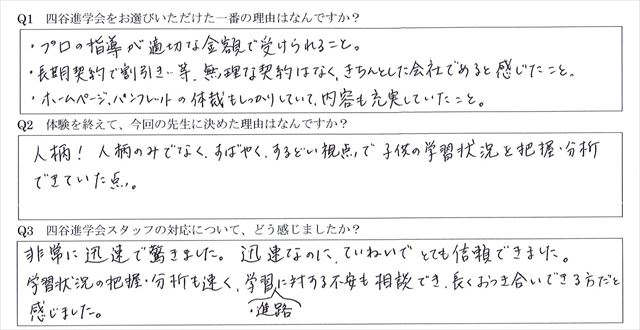 Q1 四谷進学会をお選びいただけた一番の理由はなんですか？
・プロの指導が適切な金額で受けられること。
・長期契約で割引き、等、無理な契約はなく、きちんとした会社であると感じたこと。
・ホームページ、パンフレットの体裁もしっかりしていて、内容も充実していたこと。
Q2 体験を終えて、今回の先生に決めた理由はなんですか？
人柄！人柄のみでなく、すばやく、するどい視点で子供の学習状況を把握・分析
できていた点。
Q3 四谷進学会スタッフの対応について、どう感じましたか？
非常に迅速で驚きました。迅速なのに、ていねいでとても信頼できました。
学習状況の把握・分析も速く、学習に対する不安も相談でき、長くおつき合いできる方だと
・進路
感じました。